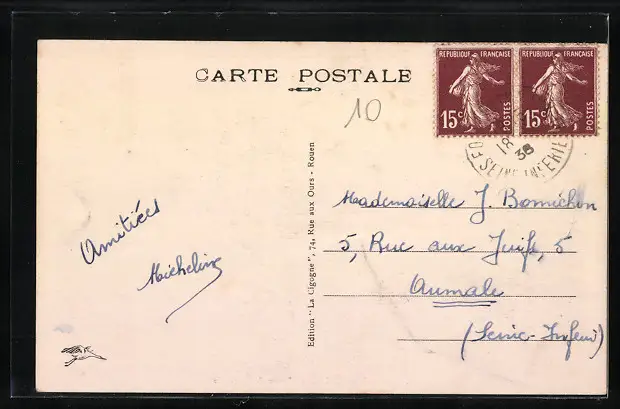 CARTE POSTALE
REPUBLIQUE FRANÇAISE
15c POSTES
REPUBLIQUE FRANÇAISE
15c POSTES
10
18
38
SEINE INFERIE
Amitiées
Micheline
Edition "La Cigogne", 74, Rue aux Ours - Rouen
Mademoiselle J. Bonnichon
5, Rue aux Juifs, 5
Aumale
(Seine-Infeur)